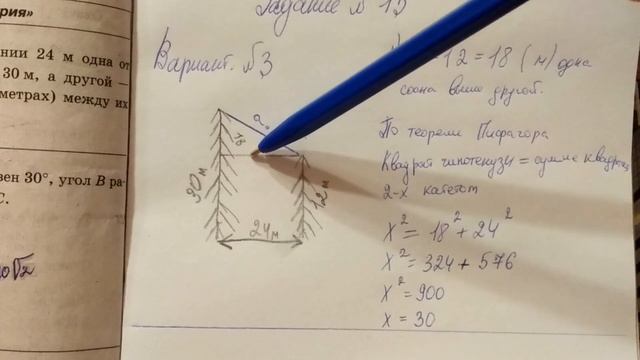 рия»
нии 24 м одна от
30 м, а другой —
метрах) между их
зен 30°, угол B ра-
C.
Задание № 13
Вариант. №3
12 = 18 (м) одна
сосна выше другой.
По теореме Пифагора
Квадрат гипотенузы = сумме квадратов
2-х катетов
x² = 18² + 24²
x² = 324 + 576
x² = 900
x = 30
18
30 м
12 м
24 м